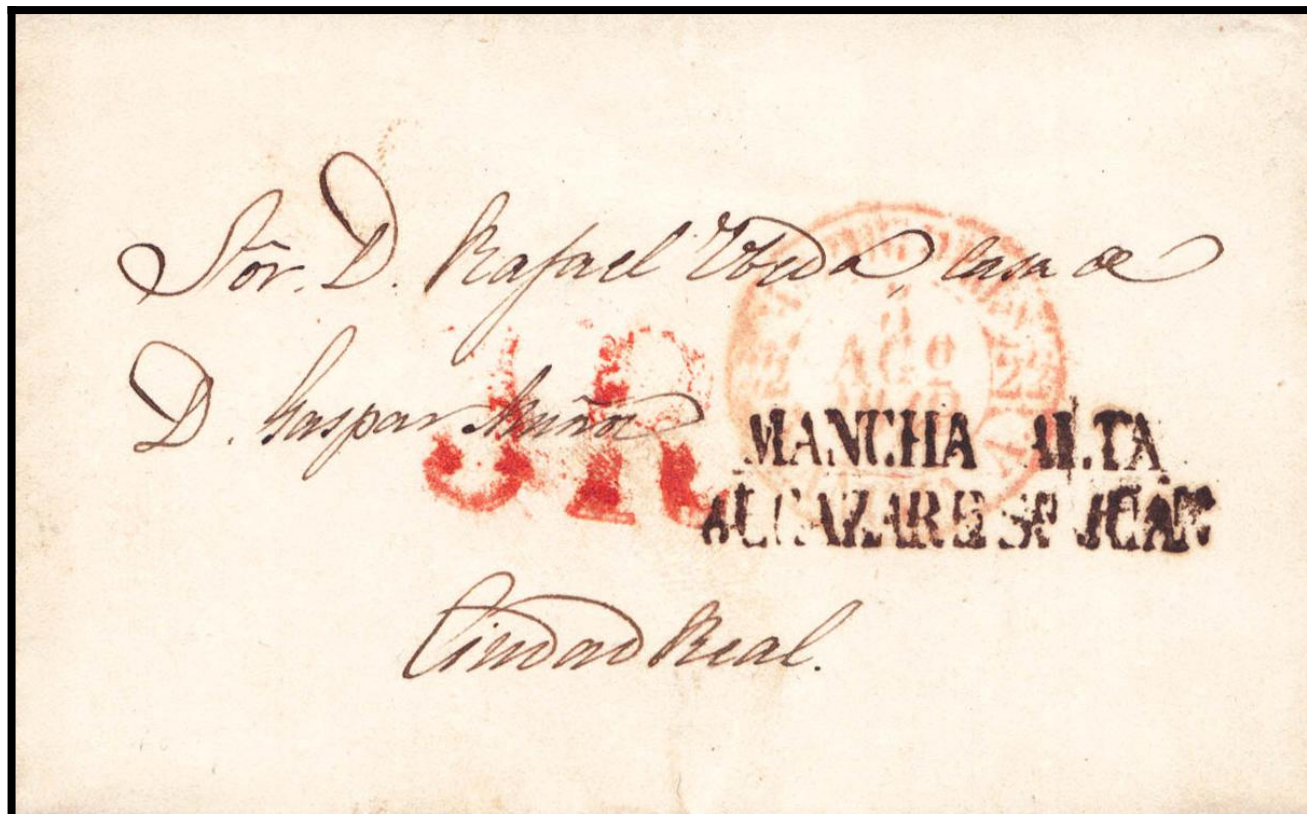 Sõr. D. Rafael Ubeda, Casa de
D. Gaspar Muñoz
AGO
MANCHA ALTA
ALCAZAR DE Sn. JUAN
Ciudad Real.